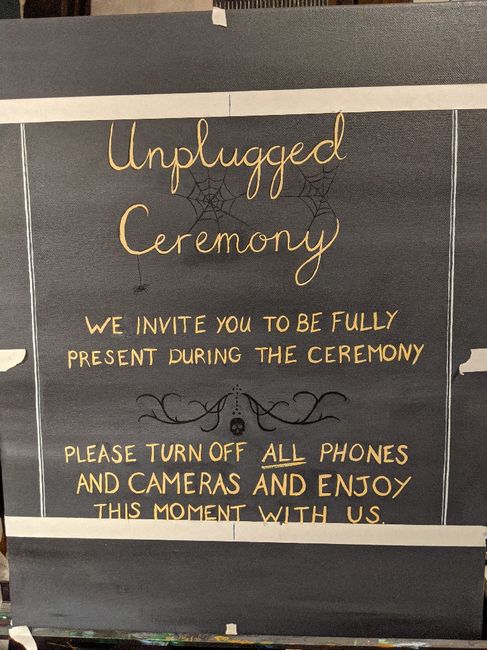 Unplugged
Ceremony
WE INVITE YOU TO BE FULLY
PRESENT DURING THE CEREMONY
PLEASE TURN OFF ALL PHONES
AND CAMERAS AND ENJOY
THIS MOMENT WITH US.